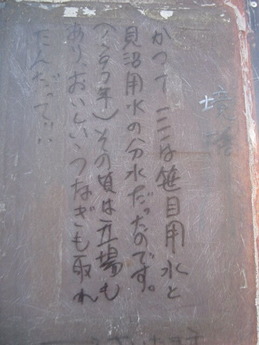 境橋
かつてここは笹目用水と
貝沼用水の分水だったのです。
その頃は立場も
あり、おいしいうなぎも取れ
たんだって…